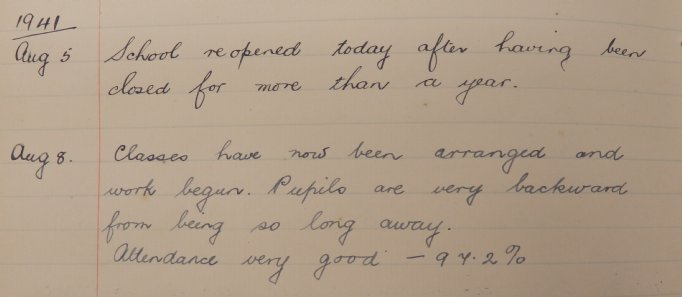 1941
Aug 5 School reopened today after having been
closed for more than a year.
Aug 8. Classes have now been arranged and
work begun. Pupils are very backward
from being so long away.
Attendance very good - 97.2%